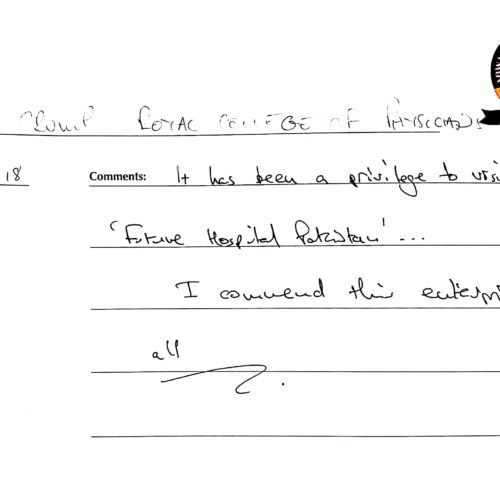 ROYAL COLLEGE OF PHYSICIANS
18 Comments: It has been a privilege to visi
'Future Hospital Pakistan' ...
I commend this enterpri
all